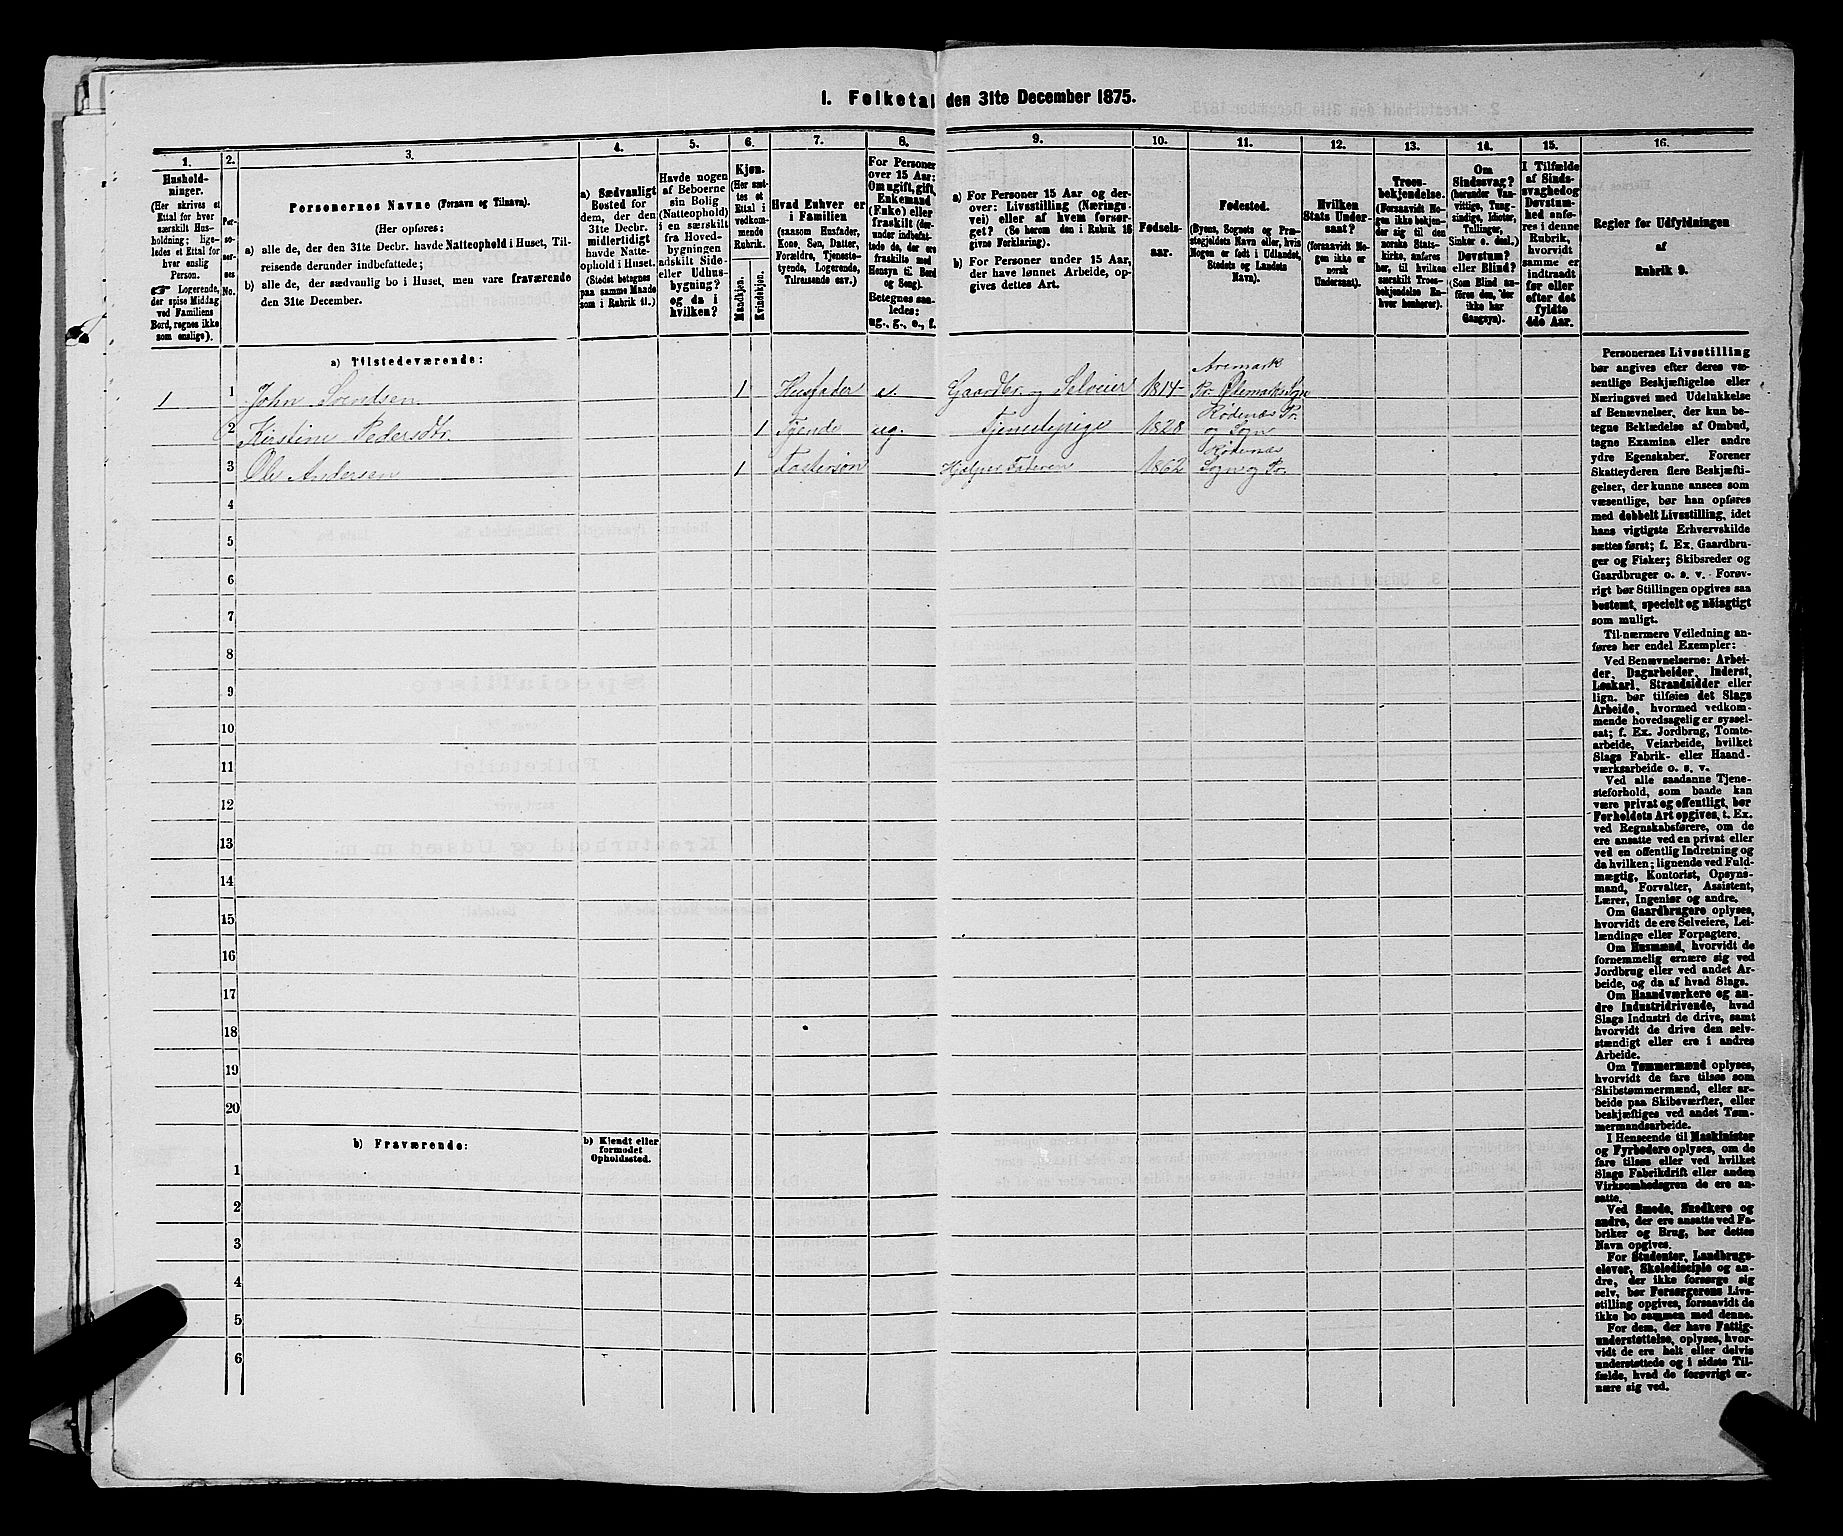 1. Folketal den 31te December 1875.
1.
Hushold-
ninger.
(Her skrives et
Ettal for hver
særskilt Hus-
holdning; lige-
ledes et Ettal for
hver enslig
Person.
☞ Logerende,
der spise Middag
ved Familiens
Bord, regnes ikke
som enslige).
2.
Per-
so-
ner-
nes
No.
3.
Personernes Navne (Fornavn og Tilnavn).
(Her opføres:
a) alle de, der den 31te Decbr. havde Natteophold i Huset, Til-
reisende derunder indbefattede;
b) alle de, der sædvanlig bo i Huset, men vare fraværende
den 31te December.
4.
a) Sædvanligt
Bosted for
dem, der den
31te Decbr.
midlertidigt
havde Natte-
ophold i Huset.
(Stedet betegnes
paa samme Maade
som i Rubrik 11.)
5.
Havde nogen
af Beboerne
sin Bolig
(Natteophold)
i en særskilt
fra Hoved-
bygningen
adskilt Side-
eller Udhus-
bygning?
og da i
hvilken?
6.
Kjøn.
(Her sæt-
tes et
Ettal i
vedkom-
mende
Rubrik.
Mandkjøn.
Kvindekjøn.
7.
Hvad Enhver er
i Familien
(saasom Husfader,
Kone, Søn, Datter,
Forældre, Tjeneste-
tyende, Logerende,
Tilreisende osv.)
8.
For Personer
over 15 Aar:
Om ugift, gift,
Enkemand
(Enke) eller
fraskilt (der-
under indbefat-
tede de, der ere
fraskilte med
Hensyn til Bord
og Seng).
Betegnes saa-
ledes:
ug., g., e., f.
9.
a) For Personer 15 Aar og der-
over: Livsstilling (Nærings-
vei) eller af hvem forsør-
get? (Se herom den i Rubrik 16
givne Forklaring).
b) For Personer under 15 Aar,
der have lønnet Arbeide, op-
gives dettes Art.
10.
Fødsels-
aar.
11.
Fødested.
(Byens, Sognets og Præ-
stegjeldets Navn eller, hvis
Nogen er født i Udlandet,
Stedets og Landets
Navn).
12.
Hvilken
Stats Under-
saat?
(forsaavidt No-
gen ikke er
norsk
Undersaat).
13.
Troes-
bekjendelse.
(Forsaavidt No-
gen ikke bekjen-
der sig til den
norske Stats-
kirke, anføres
her, til hvilken
særskilt Troes-
bekjendelse En-
hver henhører).
14.
Om
Sindssvag?
(herunder Van-
vittige, Tung-
sindige, Idioter,
Tullinger,
Sinker o. desl.)
Døvstum?
eller Blind?
(Som Blind an-
føres den, der
ikke har
Gangsyn).
15.
I Tilfælde
af Sinds-
svaghed og
Døvstum-
hed anfø-
res i denne
Rubrik,
hvorvidt
samme er
indtraadt
før eller
efter det
fyldte
4de Aar.
16.
Regler for Udfyldningen
af
Rubrik 9.
a) Tilstedeværende:
1 1 John Svendsen 1 Husfader e. Gaardbr. og Selveier 1814 Aremark
Pr. Ødemarks Sogn
2 Kirstine Pedersdtr. 1 Tyende ug. Tjenestepige 1828 Rødenæs Pr.
og Sogn
3 Ole Andersen 1 Fostersøn Hjælper Faderen 1862 Rødenæs
Sogn og Pr.
4
5
6
7
8
9
10
11
12
13
14
15
16
17
18
19
20
b) Fraværende:
b) Kjendt eller
formodet
Opholdssted.
1
2
3
4
5
6
Personernes Livsstilling
bør angives efter deres væ-
sentlige Beskjæftigelse eller
Næringsvei med Udelukkelse
af Benævnelser, der kun be-
tegne Beklædelse af Ombud,
tagne Examina eller andre
ydre Egenskaber. Forener
Skatteyderen flere Beskjæfti-
gelser, der kunne ansees som
væsentlige, bør han opføres
med dobbelt Livsstilling, idet
hans vigtigste Erhvervskilde
sættes først; f. Ex. Gaardbru-
ger og Fisker; Skibsreder og
Gaardbruger o. s. v. Forøv-
rigt bør Stillingen opgives saa
bestemt, specielt og nöiagtigt
som muligt.
Til nærmere Veiledning an-
føres her endel Exempler:
Ved Benævnelserne: Arbei-
der, Dagarbeider, Inderst,
Løskarl, Strandsidder eller
lign. bør tilføies det Slags
Arbeide, hvormed vedkom-
mende hovedsagelig er syssel-
sat; f. Ex. Jordbrug, Tomte-
arbeide, Veiarbeide, hvilket
Slags Fabrik- eller Haand-
værksarbeide o. s. v.
Ved alle saadanne Tjene-
steforhold, som baade kan
være privat og offentligt, bør
Forholdets Art opgives, t. Ex.
ved Regnskabsførere, om de
ere ansatte ved en privat eller
ved en offentlig Indretning og
da hvilken; lignende ved Fuld-
mægtig, Kontorist, Opsyns-
mand, Forvalter, Assistent,
Lærer, Ingeniør og andre.
Om Gaardbrugere oplyses,
hvorvidt de ere Selveiere, Lei-
lændinge eller Forpagtere.
Om Husmænd, hvorvidt de
fornemmelig ernære sig ved
Jordbrug eller ved andet Ar-
beide, og da af hvad Slags.
Om Haandværkere og an-
dre Industridrivende, hvad
Slags Industri de drive, samt
hvorvidt de drive den selv-
stændigt eller ere i andres
Arbeide.
Om Tømmermænd oplyses,
hvorvidt de fare tilsøs som
Skibstømmermænd, eller ar-
beide paa Skibsværfter, eller
beskjæftiges ved andet Tøm-
mermandsarbeide.
I Henseende til Maskinister
og Fyrbødere oplyses, om de
fare tilsøs eller ved hvilket
Slags Fabrikdrift eller anden
Virksomhedsgren de ere an-
satte.
Ved Smede, Snedkere og
andre, der ere ansatte ved Fa-
briker og Brug, bør dettes
Navn opgives.
For Studenter, Landbrugs-
elever, Skoledisciple og an-
dre, der ikke forsørge sig
selv, bør Forsørgerens Livs-
stilling opgives, forsaavidt de
ikke bo sammen med denne.
For dem, der have Fattig-
understøttelse, oplyses, hvor-
vidt de ere helt eller delvis
understøttede og i sidste Til-
fælde, hvad de forøvrigt er-
nære sig ved.